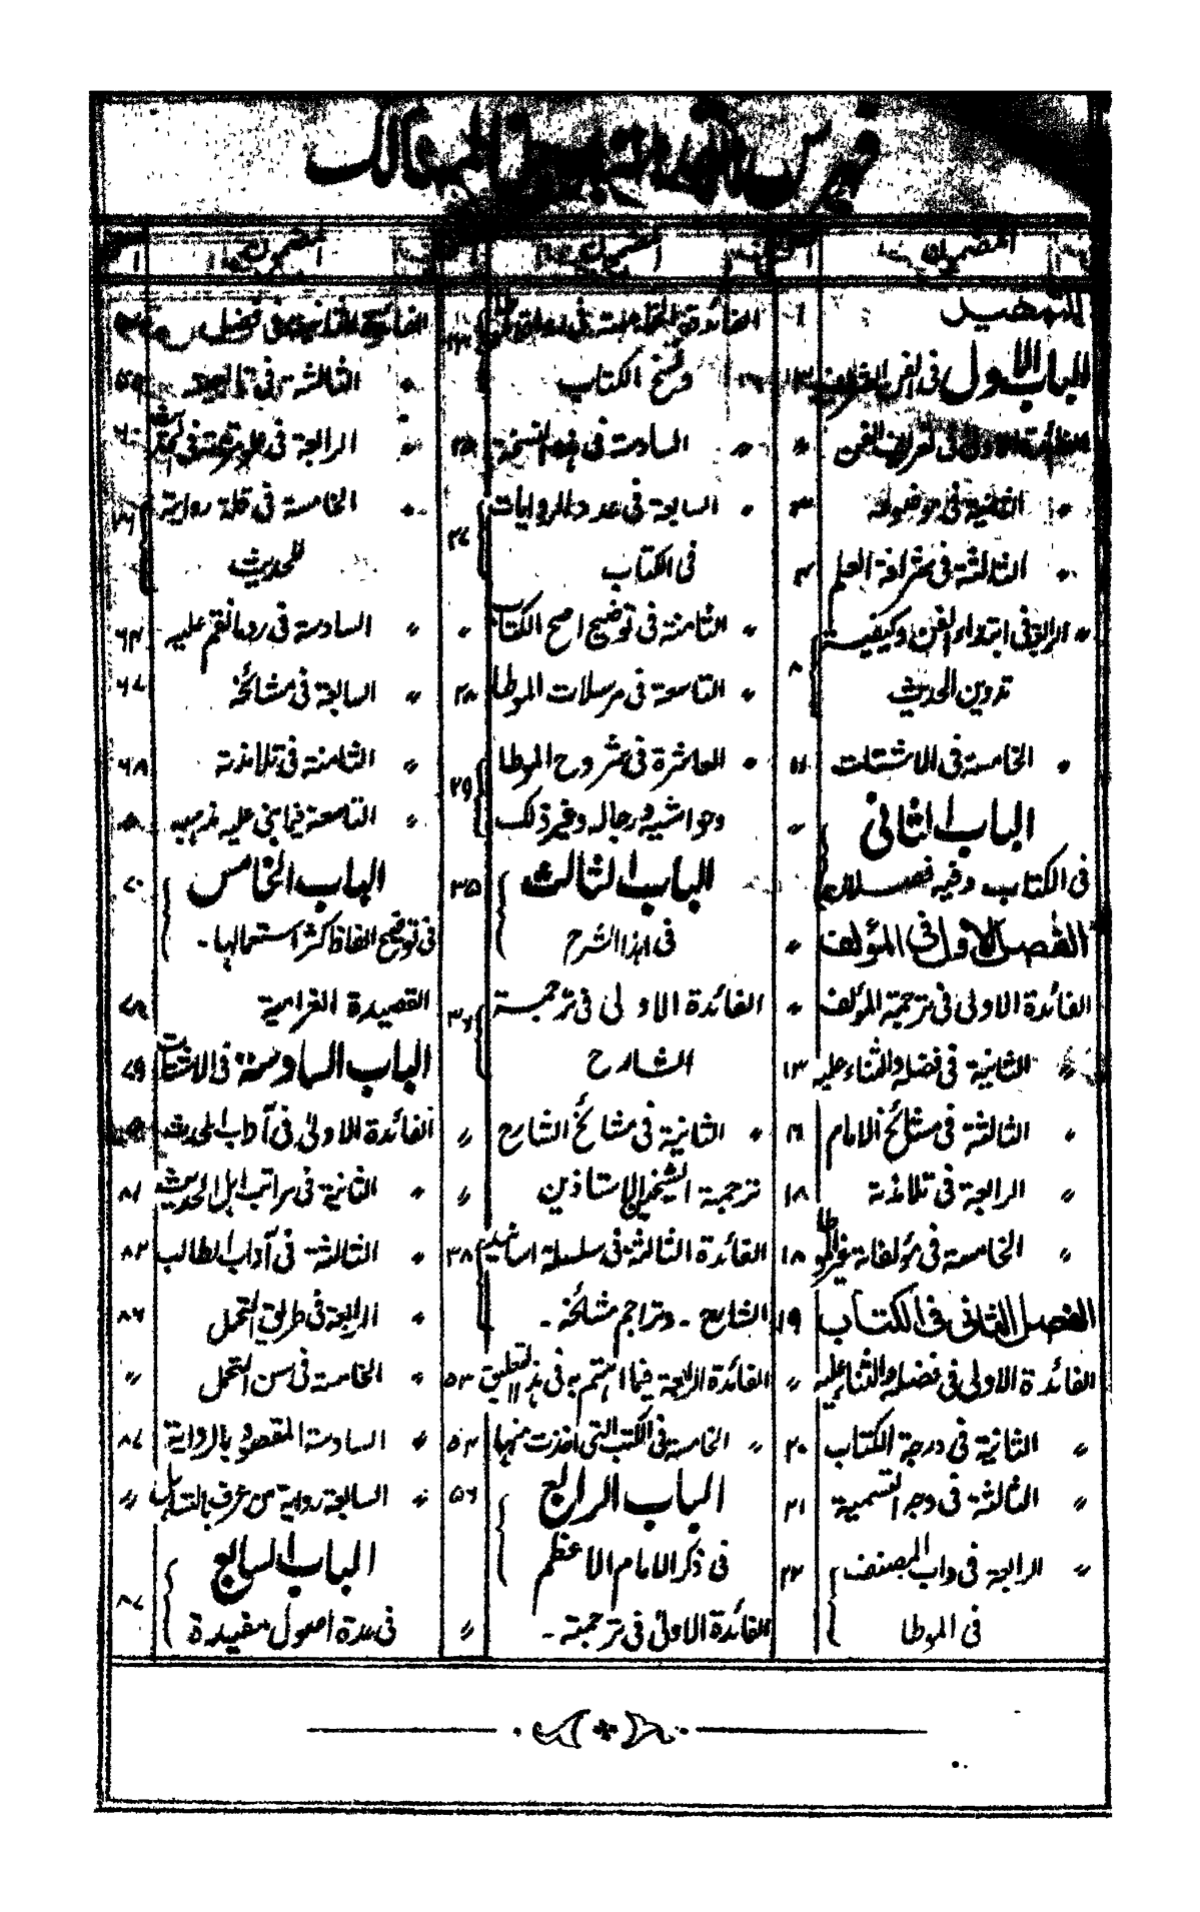 فهرس مقدمة اوجز المسالك
المضمون
التمهيد ١
الباب الاول فى الفن الشريف ٣
الفائدة الاولى فى تعريف الفن 〃
〃 الثانية فى موضوعه ٣
〃 الثالثة فى شرافة العلم ٤
〃 الرابعة فى ابتداء الفن وكيفية
تدوين الحديث ٨
〃 الخامسة فى الاشتتات ١١
الباب الثانى 〃
فى الكتاب وفيه فصلان
الفصل الاول فى المؤلف 〃
الفائدة الاولى فى ترجمة المؤلف 〃
〃 الثانية فى فضله والثناء عليه ١٣
〃 الثالثة فى مشائخ الامام ١٦
〃 الرابعة فى تلامذته ١٨
〃 الخامسة فى مؤلفاته غير الموطا ١٨
الفصل الثانى فى الكتاب ١٩
الفائدة الاولى فى فضله والثناء عليه 〃
〃 الثانية فى درجة الكتاب ٢٠
〃 الثالثة فى وجه التسمية ٢١
〃 الرابعة فى داب المصنف ٢٢
فى الموطا
المضمون
الفائدة
ونسخ الكتاب
〃 السادسة فى
〃 السابعة فى عدد الروايات
فى الكتاب ٢٧
〃 الثامنة فى توضيح اصح الكتاب 〃
〃 التاسعة فى مرسلات الموطا ٢٨
〃 العاشرة فى شروح الموطا
وحواشيه ورجاله وغير ذلك ٢٩
الباب الثالث ٣٥
فى هذا الشرح
الفائدة الاولى فى ترجمة
الشارح ٣٦
〃 الثانية فى مشائخ الشارح 〃
ترجمة الشيخ الاستاذين 〃
الفائدة الثالثة فى سلسلة اسانيد ٣٨
الشارح - وتراجم مشائخه -
الفائدة الرابعة فيما اهتم به فى هذا التعليق ٥٣
〃 الخامسة فى الكتب التى اخذت منها ٥٤
الباب الرابع ٥٦
فى ذكر الامام الاعظم
الفائدة الاولى فى ترجمته - 〃
المضمون
الفائدة الثانية فى فضله
〃 الثالثة فى تابعيته ٥٩
〃 الرابعة فى ٦٠
〃 الخامسة فى قلة رواية
للحديث
〃 السادسة فى رد ما نقم عليه ٦٣
〃 السابعة فى مشائخه ٦٧
〃 الثامنة فى تلامذته ٦٨
〃 التاسعة فيما بنى عليه مذهبه
الباب الخامس ٧٠
فى توضيح الفاظ كثر استعمالها -
القصيدة الغرامية ٧٩
الباب السادس فى الاشتتات ٧٩
الفائدة الاولى فى آداب الحديث
〃 الثانية فى مراتب اهل الحديث ٨١
〃 الثالثة فى آداب الطالب ٨٣
〃 الرابعة فى طريق التحمل ٨٦
〃 الخامسة فى سن التحمل 〃
〃 السادسة المقصود بالرواية ٨٧
〃 السابعة رواية من عرف بالتساهل 〃
الباب السابع ٨٧
فى عدة اصول مفيدة